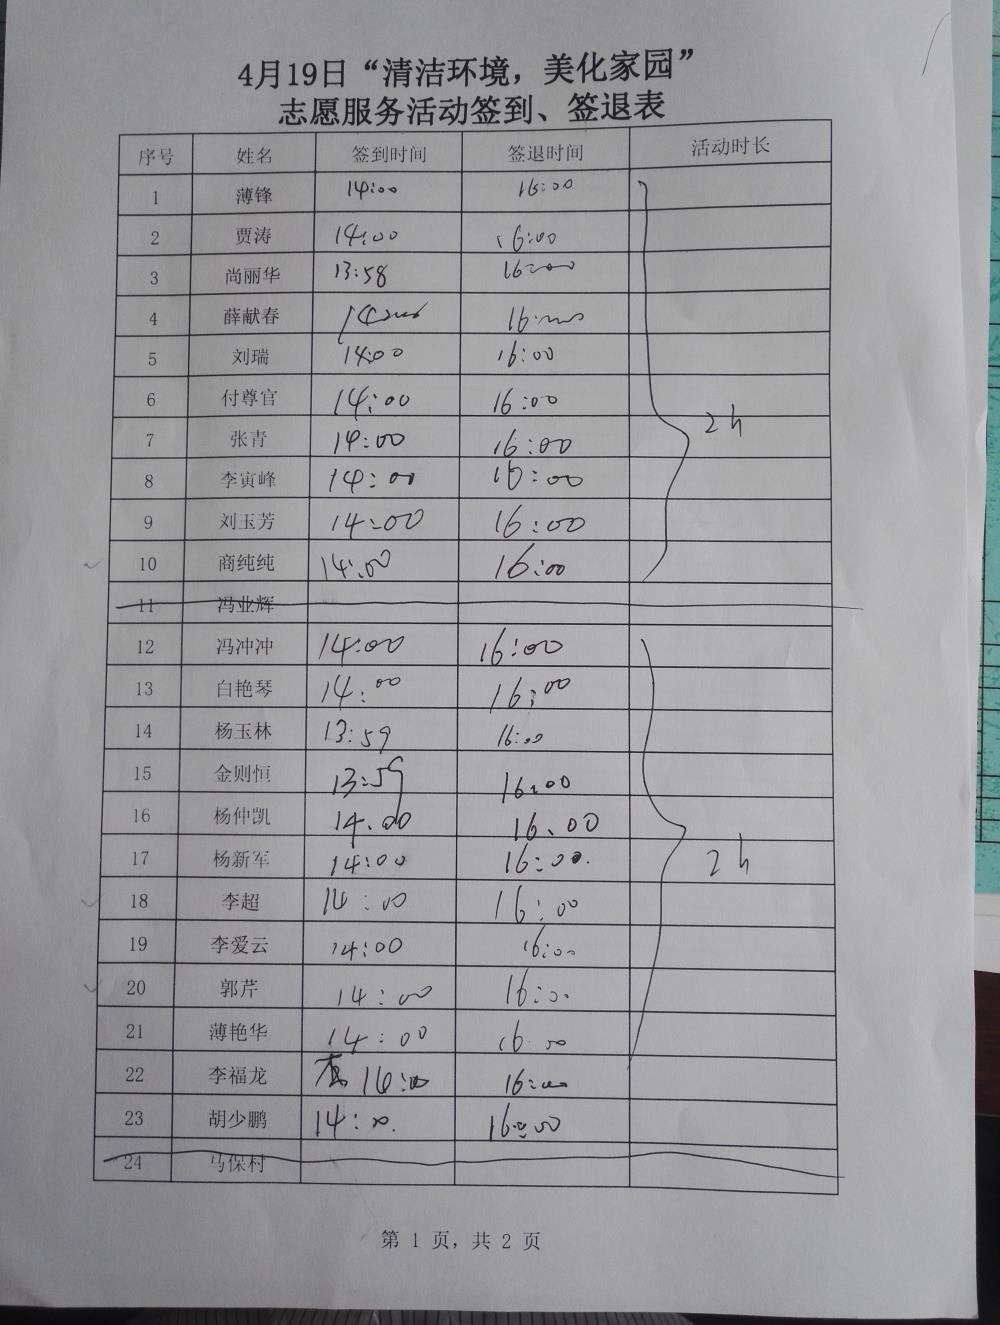 4月19日“清洁环境，美化家园”
志愿服务活动签到、签退表
序号 姓名 签到时间 签退时间 活动时长
1 薄锋 14:00 16:00
2 贾涛 14:00 16:00
3 尚丽华 13:58 16:00
4 薛献春 16:00
5 刘瑞 14:00 16:00
6 付尊官 14:00 16:00
2h
7 张青 14:00 16:00
8 李寅峰 14:00 16:00
9 刘玉芳 14:00 16:00
10 商纯纯 14:00 16:00
11 冯业辉
12 冯冲冲 14:00 16:00
13 白艳琴 14:00 16:00
14 杨玉林 13:59 16:00
15 金则恒 13:59 16:00
16 杨仲凯 14.00 16.00
17 杨新军 14:00 16:00. 2h
18 李超 14:00 16:00
19 李爱云 14:00 16:00
20 郭芹 14:00 16:00
21 薄艳华 14:00 16:00
22 李福龙 14:00 16:00
23 胡少鹏 14:00. 16:00
24 马保村
第 1 页，共 2 页